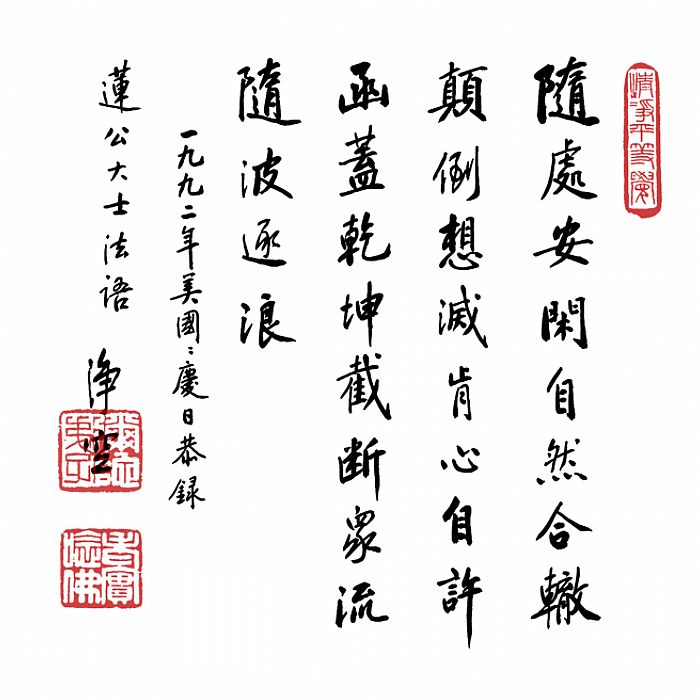 清淨平等覺
隨處安閑自然合轍
顛倒想滅肯心自許
函蓋乾坤截斷眾流
隨波逐浪
一九九二年美國〻慶日恭録
蓮公大士法語
淨空
老實念佛